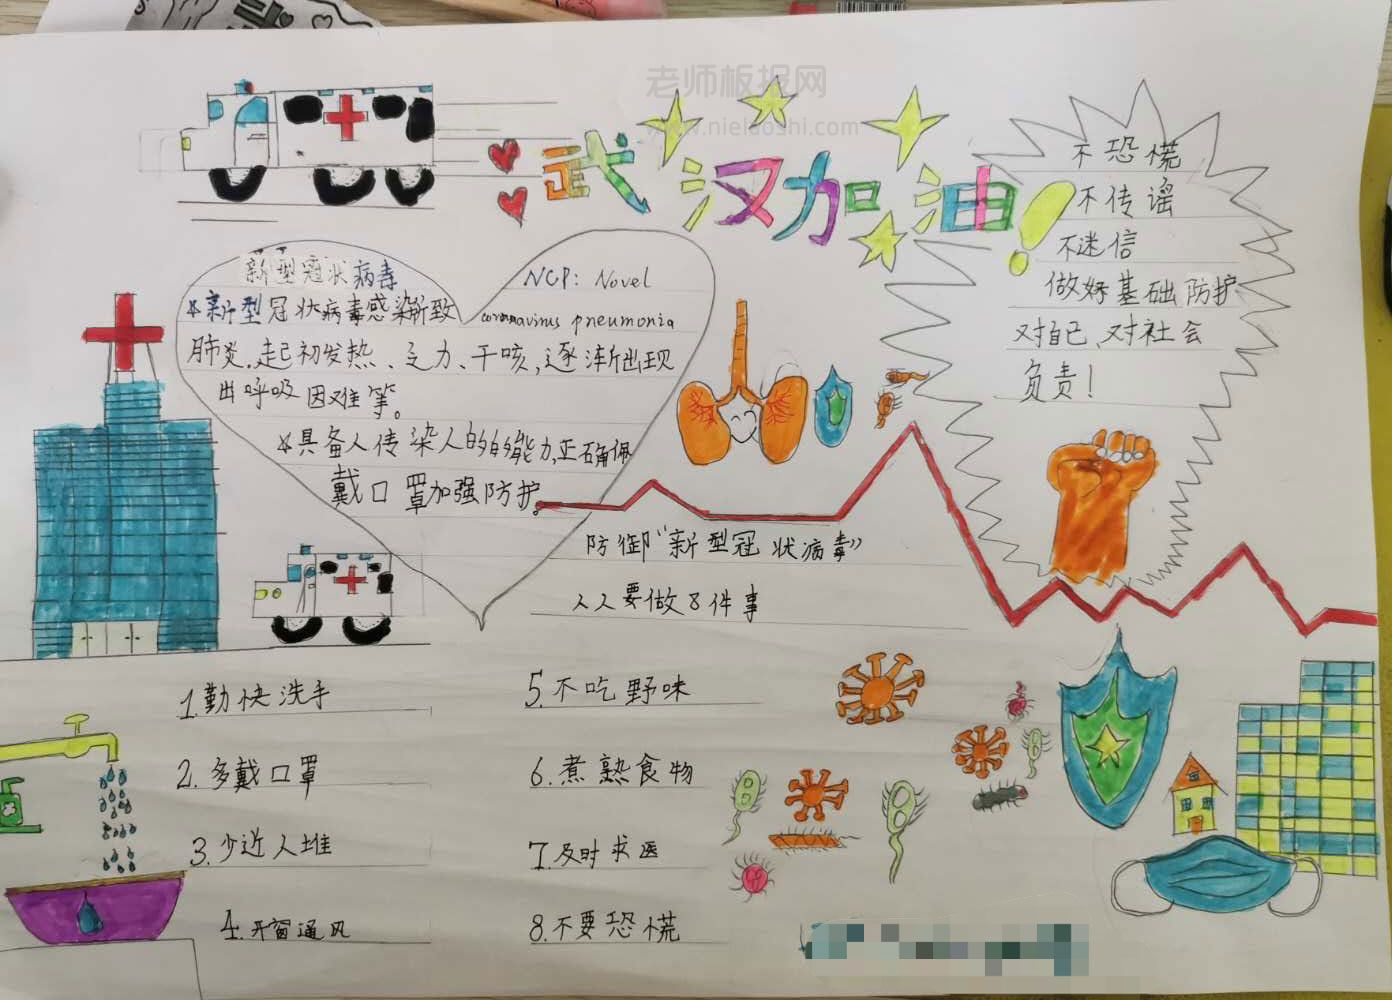 老师板报网
www.nielaoshi.com
武汉加油!
不恐慌
不传谣
不迷信
做好基础防护
对自己、对社会
负责!
新型冠状病毒
NCP: Novel
coronavirus pneumonia
新型冠状病毒感染所致
肺炎.起初发热、乏力、干咳,逐渐出现
出呼吸因难等。
具备人传染人的的能力,正确佩
戴口罩加强防护。
防御“新型冠状病毒”
人人要做8件事
1.勤快洗手
2.多戴口罩
3.少近人堆
4.开窗通风
5.不吃野味
6.煮熟食物
7.及时求医
8.不要恐慌